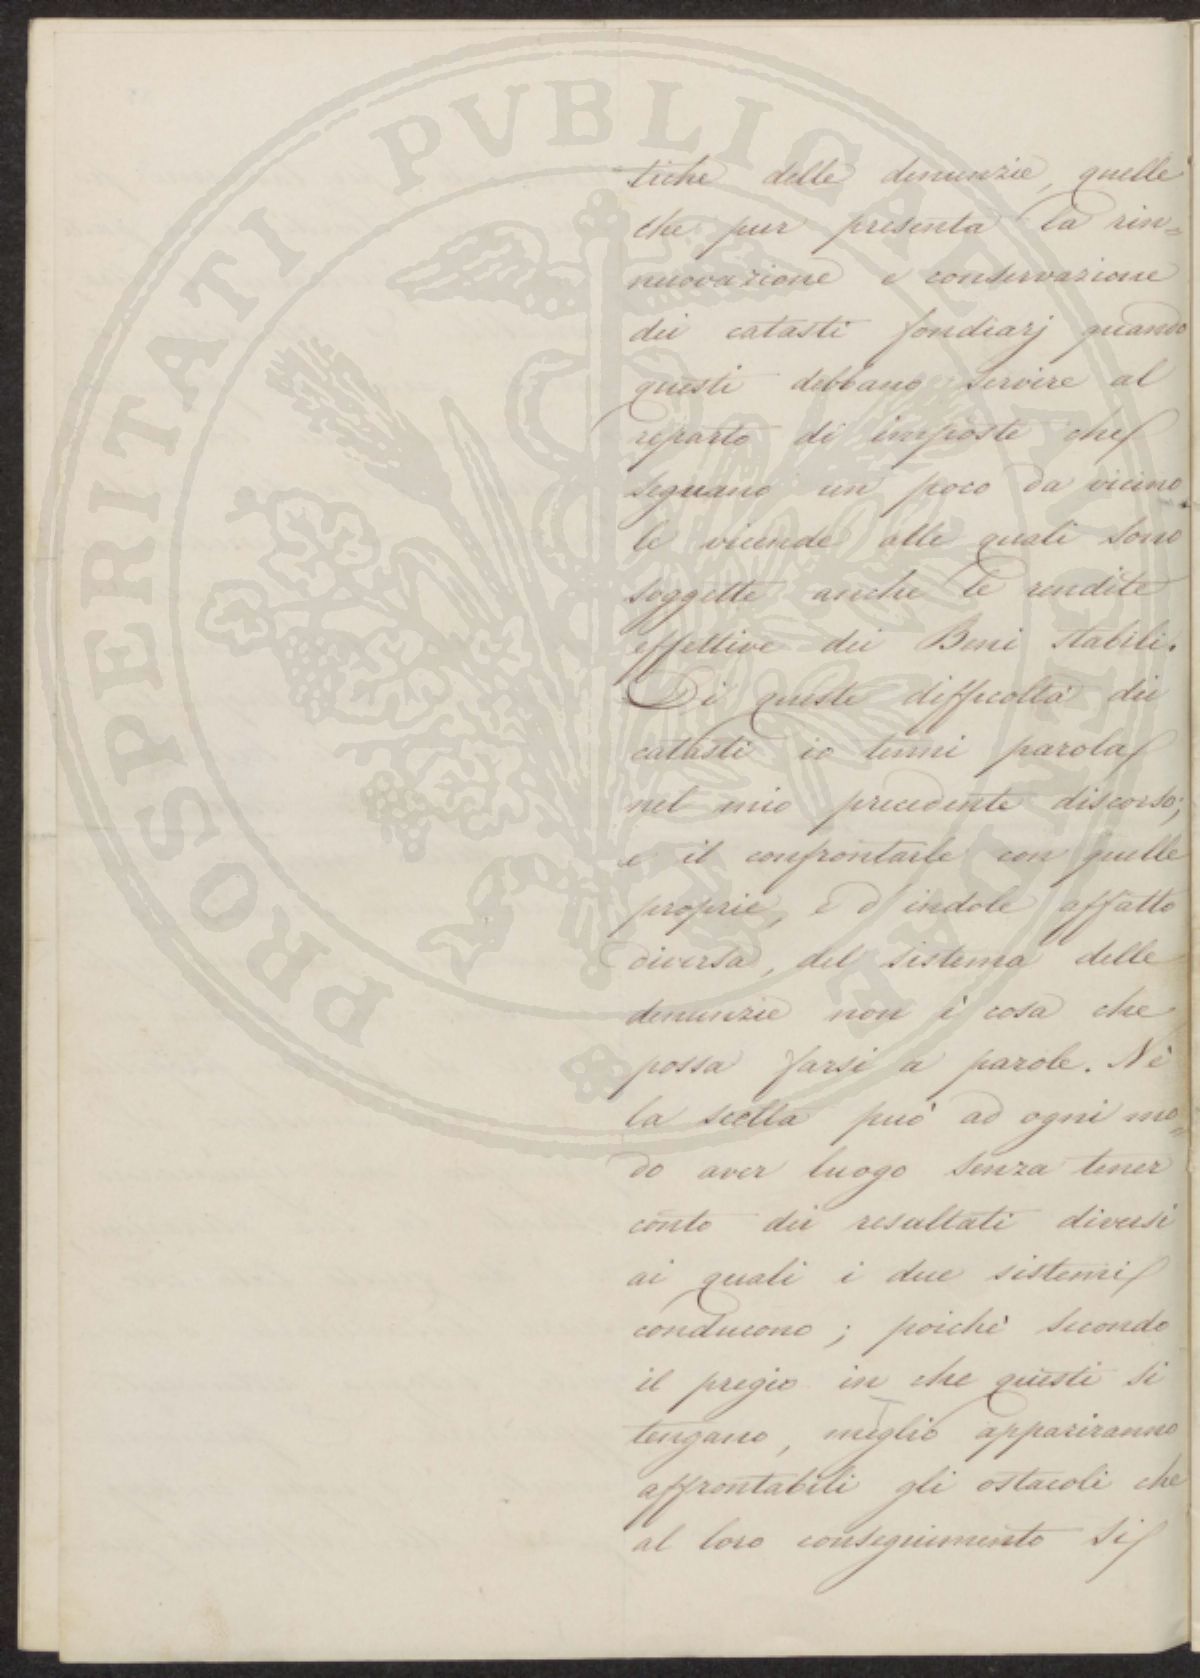 PROSPERITATI PVBLICAE AVGENDAE
tiche delle denunzie, quelle
che pur presenta la rin=
nuovazione e conservazione
dei catasti fondiarj quando
questi debbano servire al
reparto di imposte che
seguano un poco da vicino
le vicende alle quali sono
soggette anche le rendite
effettive dei Beni stabili.
Di queste difficoltà dei
catasti io tenni parola
nel mio precedente discorso;
e il confrontarle con quelle
proprie, e d'indole affatto
diversa, del sistema delle
denunzie non è cosa che
possa farsi a parole. Nè
la scelta può ad ogni mo=
do aver luogo senza tener
conto dei resultati diversi
ai quali i due sistemi
conducono; poichè secondo
il pregio in che questi si
tengano, meglio appariranno
affrontabili gli ostacoli che
al loro conseguimento si